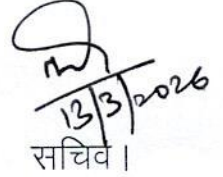 13/3/2026
सचिव।